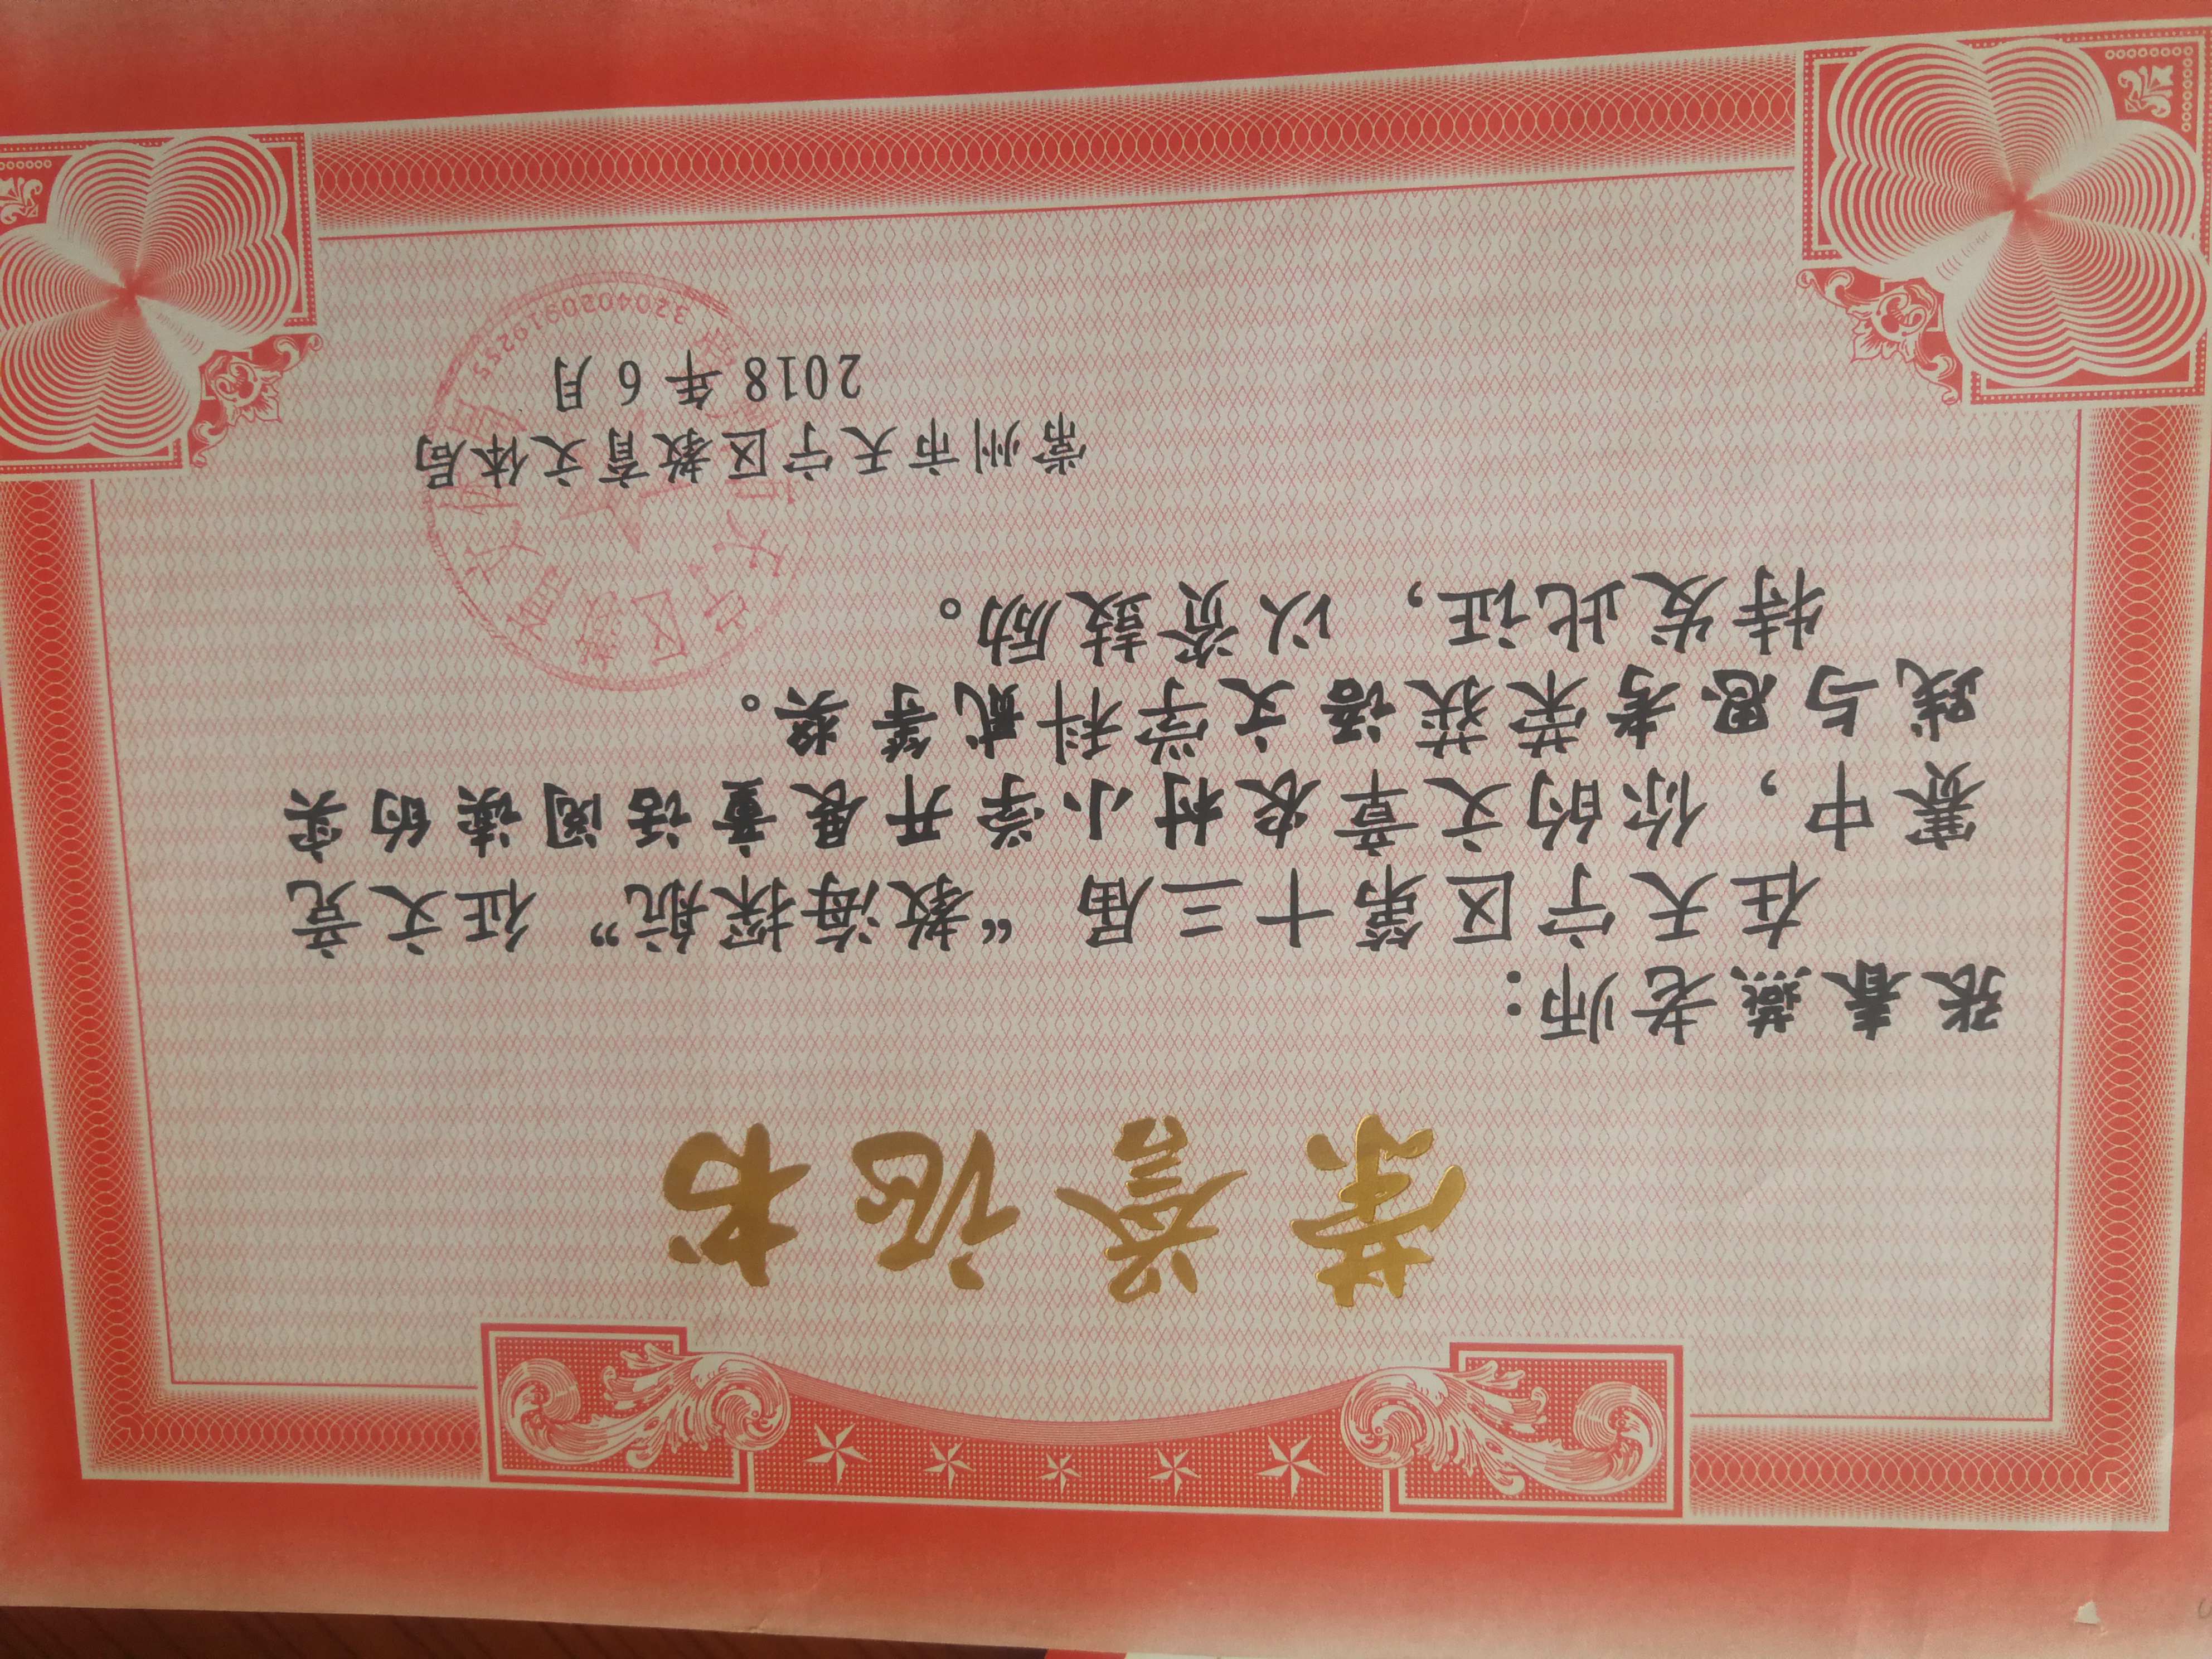 荣誉证书
张春燕老师：
在天宁区第十三届“教海探航”征文竞
赛中，你的文章农村小学开展童话阅读的实
践与思考荣获语文学科贰等奖。
特发此证，以资鼓励。
常州市天宁区教育文体局
2018年6月
3204020919255